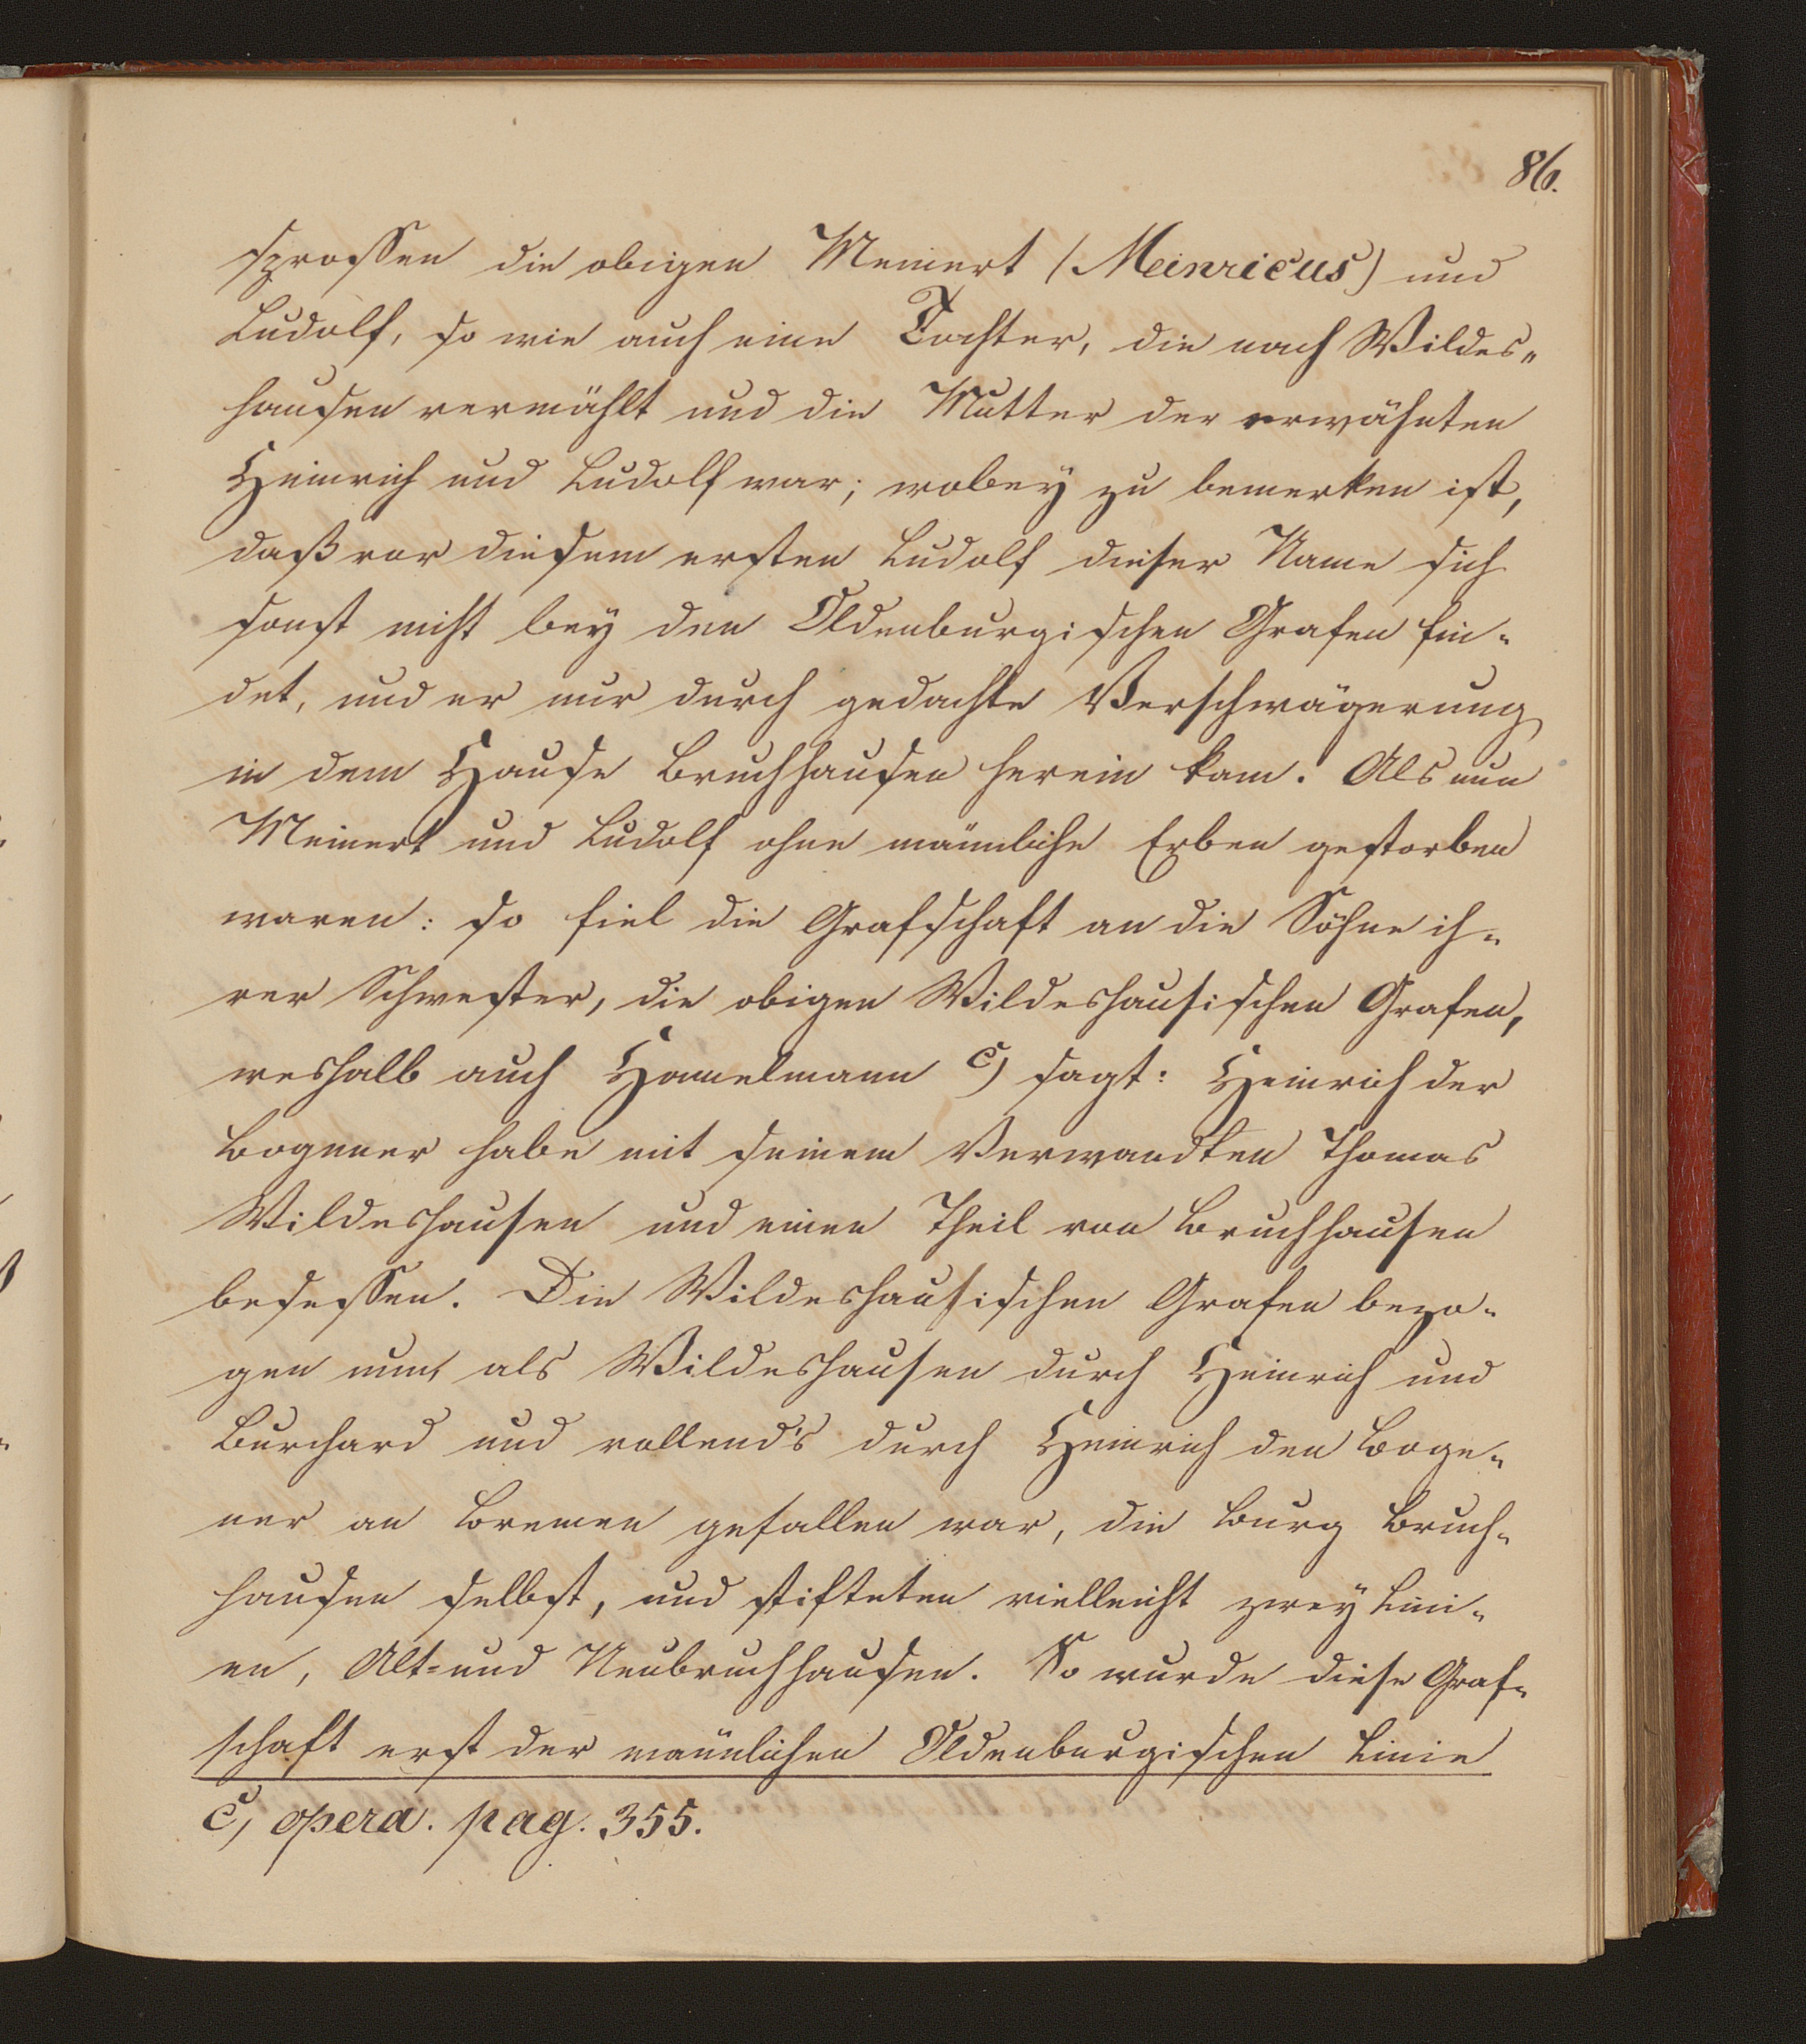 86.
sprossen die obigen Meinert (Meinricus) und
Ludolf, so wie auch eine Tochter, die nach Wildes„
hausen vermählt und die Mutter der erwähnten
Heinrich und Ludolf war; wobey zu bemerken ist,
daß vor diesem ersten Ludolf dieser Name sich
sonst nicht bey den Oldenburgischen Grafen fin-
det, und er nur durch gedachte Verschwägerung
in dem Hause Bruchhausen herein kam. Als nun
Meinert und Ludolf ohne männliche Erben gestorben
waren: so fiel die Grafschaft an die Söhne ih-
rer Schwester, die obigen Wildeshausischen Grafen,
weshalb auch Hamelmann c) sagt: Heinrich der
Bogener habe mit seinem Verwandten Thomas
Wildeshausen und einen Theil von Bruchhausen
besessen. Die Wildeshausischen Grafen bezo-
gen nun, als Wildeshausen durch Heinrich und
Burchard und vollend's durch Heinrich den Boge-
ner an Bremen gefallen war, die Burg Bruch-
hausen selbst, und stifteten vielleicht zwey Lini-
en, Alt- und Neubruchhausen. So wurde diese Graf-
schaft erst der männlichen Oldenburgischen Linie
c, opera. pag. 355.